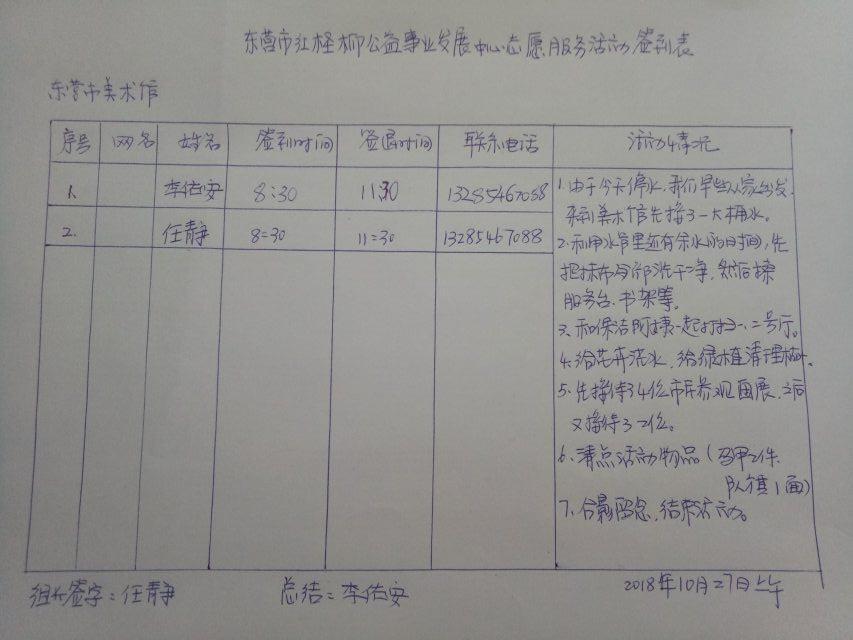 东营市红柽柳公益事业发展中心志愿服务活动签到表
东营市美术馆
序号 网名 姓名 签到时间 签退时间 联系电话 活动情况
1. 李佑安 8:30 11:30 13285467058
2. 任静 8:30 11:30 13285467088
1. 由于今天停水,我们早些从家出发,
来到美术馆先接了一大桶水。
2. 利用水管里还有余水的时间,先
把抹布全部洗干净,然后擦
服务台、书架等。
3. 和保洁阿姨一起打扫一、二号厅。
4. 给花卉浇水,给绿植清理枯叶。
5. 先接待了4位市民参观画展,之后
又接待了2位。
6. 清点活动物品(马甲2件、
队旗1面)
7. 合影留念,结束活动。
组长签字:任静 总结:李佑安 2018年10月27日上午